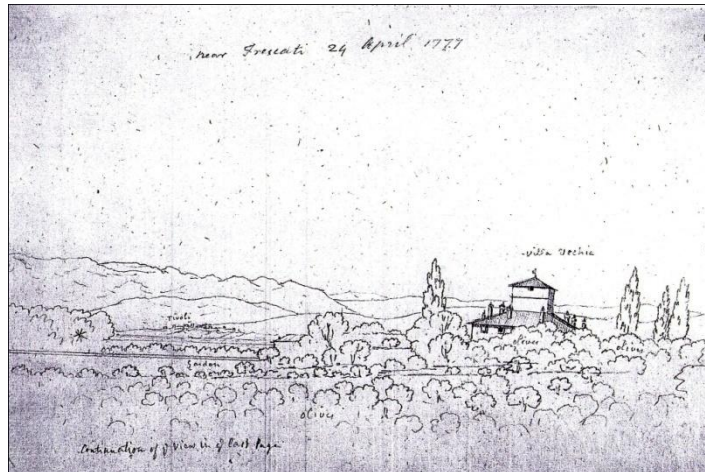 near Frescati 24 April 1777
villa Vechia
Tivoli
olives
olives
Garden
olives
Continuation of ẙ View in ẙ last Page